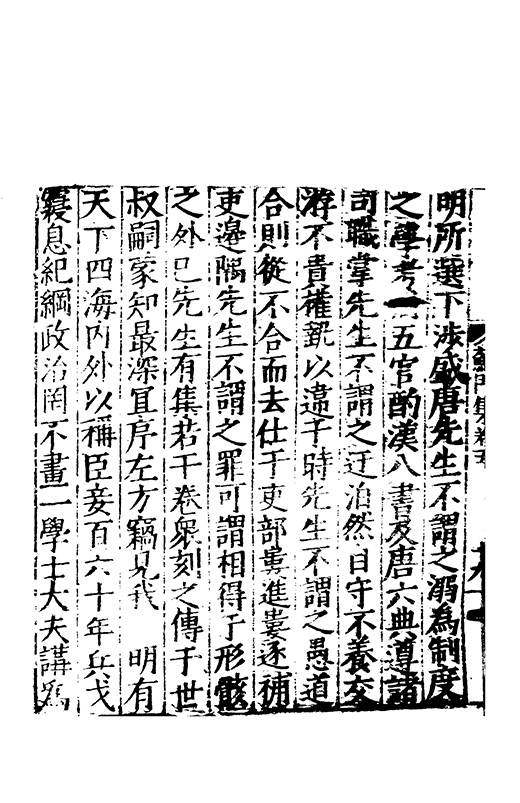 明所選下涉盛唐先生不謂之溺為制度
之學考 五官酌漢八書及唐六典遵諸
司職掌先生不謂之迂泊然自守不養交
游不貴權勢以違于時先生不謂之愚道
合則從不合而去仕于吏部屢進屢逐補
吏邊隅先生不謂之罪可謂相得于形骸
之外已先生有集若干卷衆刻之傳于世
叔嗣蒙知最深宜序左方竊見我 明有
天下四海內外以稱臣妾百六十年兵戈
寢息紀綱政治罔不畫一學士大夫講寫
集卷五